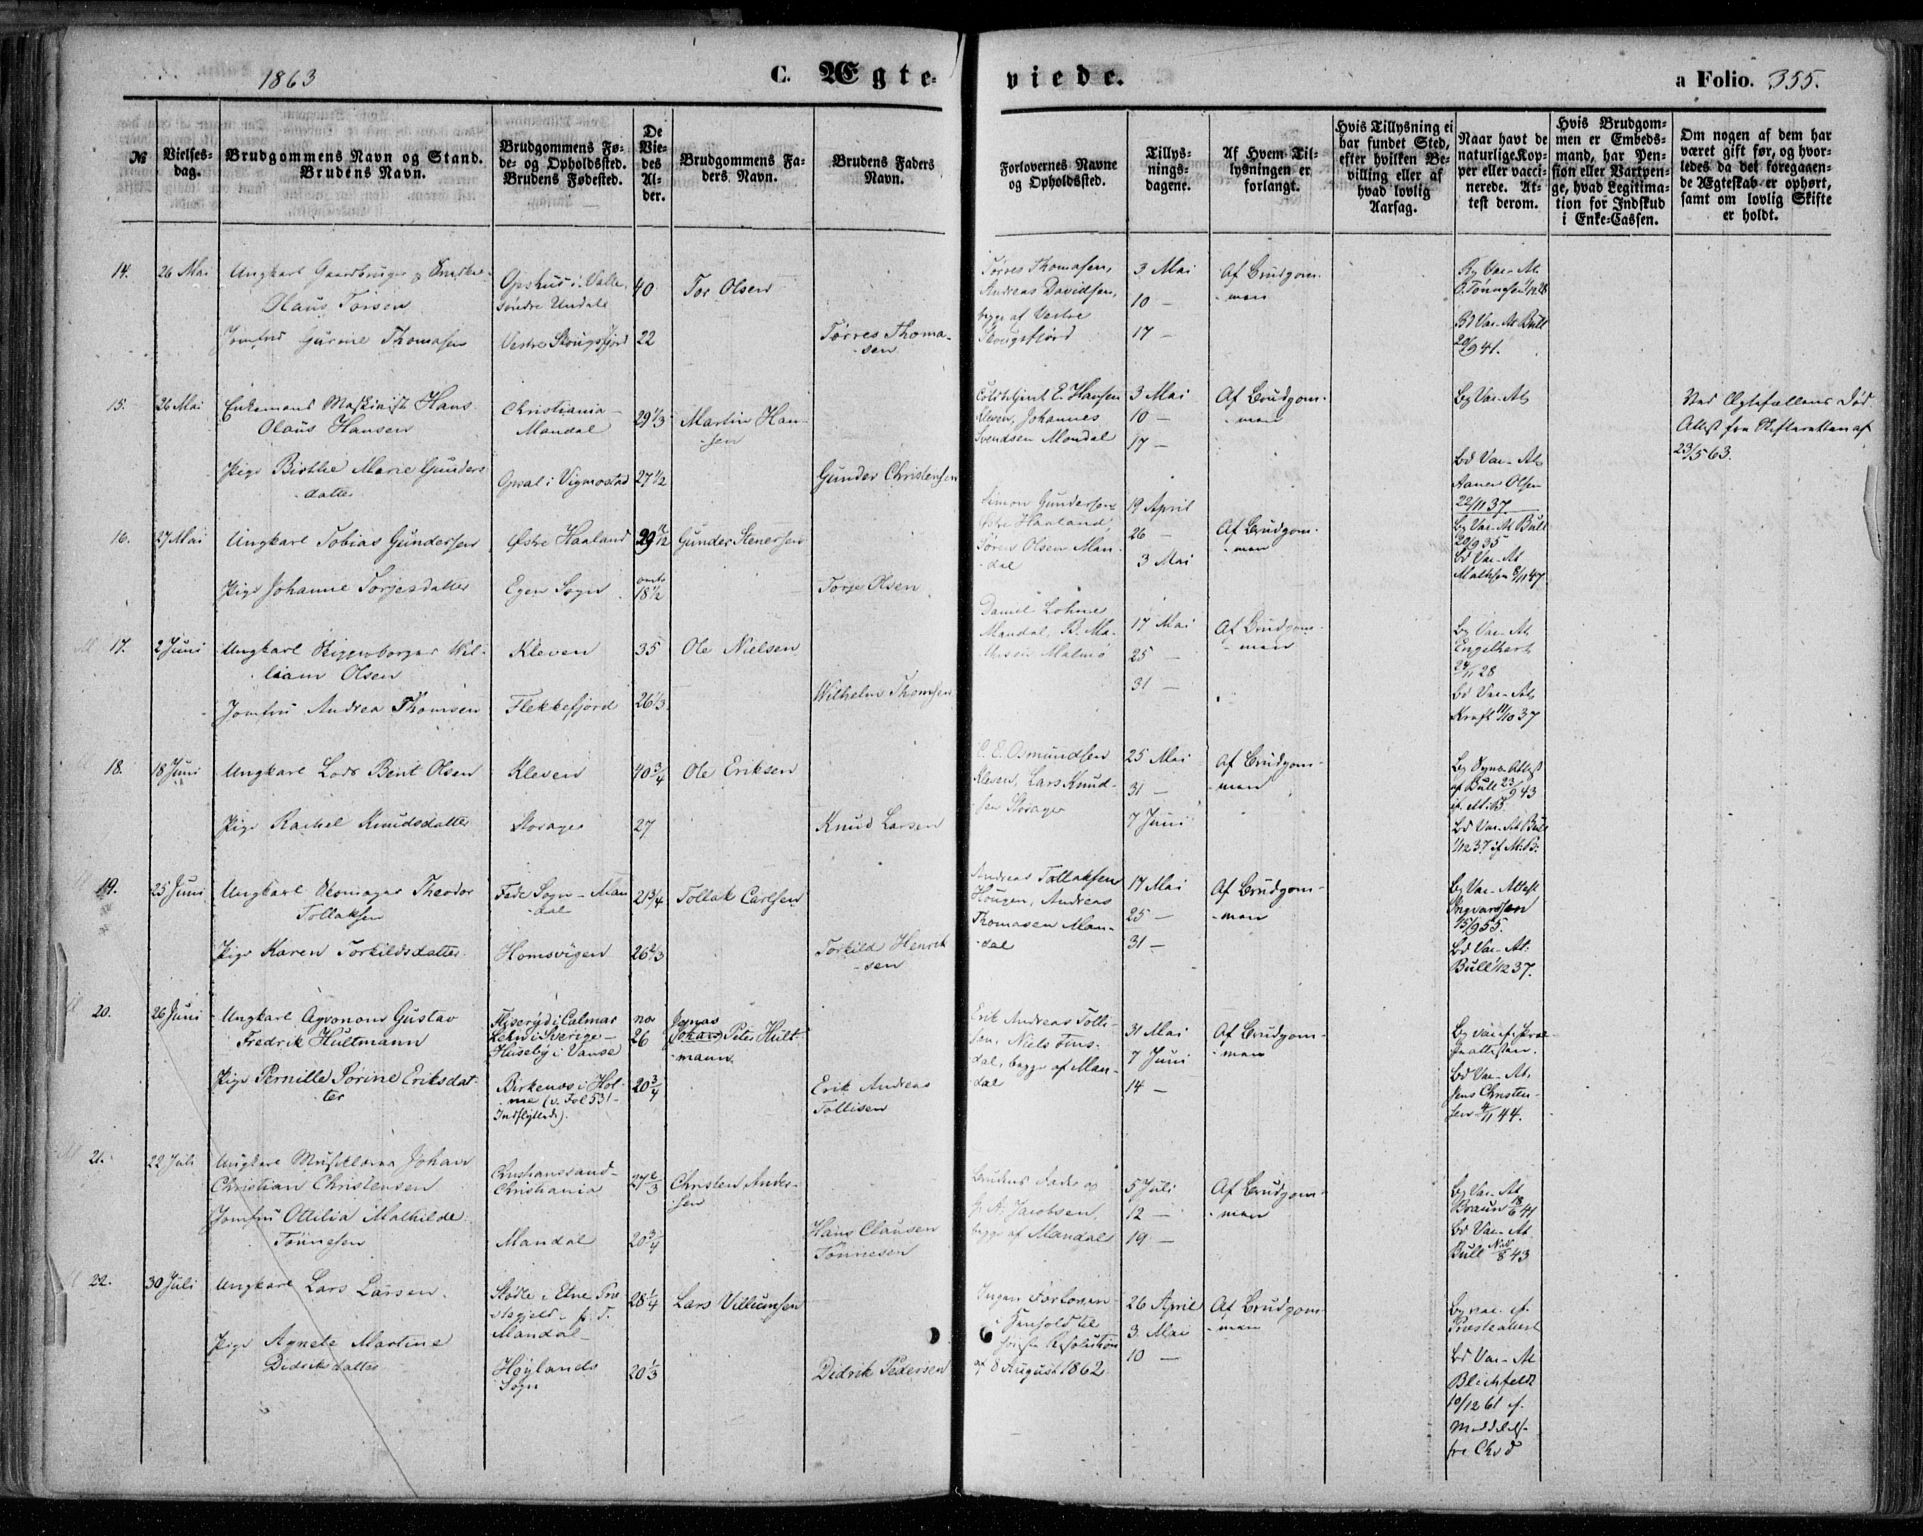 1863
C. Ægte-
viede.
a Folio. 355.
№
Vielses-
dag.
Brudgommens Navn og Stand.
Brudens Navn.
Brudgommens Fø-
de- og Opholdssted.
Brudens Fødested.
De
Vie-
des
Al-
der.
Brudgommens Fa-
ders Navn.
Brudens Faders
Navn.
Forlovernes Navne
og Opholdssted.
Tillys-
nings-
dagene.
Af Hvem Til-
lysningen er
forlangt.
Hvis Tillysning ei
har fundet Sted,
efter hvilken Be-
villing eller af
hvad lovlig
Aarsag.
Naar havt de
naturlige Kop-
per eller vacci-
nerede. At-
test derom.
Hvis Brudgom-
men er Embeds-
mand, har Pen-
sion eller Vartpen-
ge, hvad Legitima-
tion for Indskud
i Enke-Cassen.
Om nogen af dem har
været gift før, og hvor-
ledes da det foregaaen-
de Ægteskab er ophørt,
samt om lovlig Skifte
er holdt.
14.
26 Mai
Ungkarl Gaardbruger
Olaus Torsen
Jomfru Gurine Thomasen
Opshus i Valle,
Søndre Undale
Vestre Skougsfjord
40
22
Tor Olsen
Tørres Thoma-
-sen
Tørres Thomasen,
Andreas Davidsen,
begge af Vestre
Skougsfjord
3 Mai
10 -
17 -
Af Brudgom-
-men
Bg Vac-At.
Bd Vac-At Bull
20/9 41.
15.
26 Mai
Enkemand Maskinist Hans
Olaus Hansen
Pige Birthe Marie Gunders-
-datter
Christiania -
Mandal
i Vigmostad
29 1/3
27 1/2
Martin Han-
-sen
Gunder Christensen
E. Hansen
Kleven, Johannes
Svendsen Mandal
3 Mai
10 -
17 -
Af Brudgom-
-men
Bg Vac-At.
Bd Vac-At.
Aanen Olsen
22/11 37
Ved Ægtefællens Død
Attest fra Skifteretten af
23/5 63.
16.
27 Mai
Ungkarl Tobias Gundersen
Pige Johanne Torjesdatter
Østre Haaland
Egen Sogn
29
18 1/2
Gunder Stenersen
Torje Olsen
Simon Gundersen
Østre Haaland
Søren Olsen Man-
-dal
19 April
26 -
3 Mai
Af Brudgom-
-men
Bg Vac-At Bull
20/9 35
Bd Vac-At
17.
2 Juni
Ungkarl Riggerborger Wil-
liam Olsen
Jomfru Andrea Thomsen
Kleven
Flekkefjord
35
26 1/3
Ole Nielsen
Wilhelm Thomsen
Daniel Lohne
Mandal, B. Ma-
Malmø
17 Mai
25 -
31 -
Af Brudgom-
-men
Bg Vac-At.
Engelhart
24/1 28
Bd Vac-At.
Kraft 11/10 37
18.
18 Juni
Ungkarl Lods Bent Olsen
Pige Rachel Knudsdatter
Kleven
Storager
40 3/4
27
Ole Eriksen
Knud Larsen
E. Osmundsen
Kleven, Lars Knud-
-sen Storager
25 Mai
31 -
7 Juni
Af Brudgom-
-men
af Bull 23/9 43
Bd Vac-At Bull
1/12 37 if. M.B.
19.
25 Juni
Ungkarl Skomager Theodor
Tollaksen
Pige Karen Torkildsdatter
Fede Sogn - Man-
dal
Homsvigen
21 3/4
26 2/3
Tollak Carlsen
Torkild Henrik-
-sen
Andreas Tollaksen
Hougen, Andreas
Thomasen Man-
-dal
17 Mai
25 -
31 -
Af Brudgom-
-men
Bg Vac-Attest
Ingvarssen
15/9 55.
Bd Vac-At.
Bull 1/12 37.
20.
26 Juni
Ungkarl Agronom Gustav
Fredrik Hultmann
Pige Pernille Sorine Eriksdat-
ter
Fliserÿd i Calmar
Lehn i Sverige -
Huseby i Vanse
Birkenæs i Hol-
me (v. Fol 531 -
Indflyttede).
26
20 3/4
Jonas
Johan Peter Hult-
mann
Erik Andreas
Tollisen
Erik Andreas Tolli-
sen, Niels Fins-
dal, begge af Man-
dal
31 Mai
7 Juni
14 -
Af Brudgom-
-men
Bd Vac-At.
Jens Christen-
sen 4/11 44.
21.
22 Juli
Ungkarl Musiklærer Johan
Christian Christensen
Jomfru Ottilia Mathilde
Tønnesen
Christianssand -
Christiania
Mandal
27 2/3
20 3/4
Christen Ander-
sen
Hans Clausen
Tønnesen
Brudens Fader og
A. Jacobsen,
begge af Mandal
5 Juli
12 -
19 -
Af Brudgom-
-men
Bg Vac-At
Braun 18/6 41
Bd Vac-At.
Bull 43
22.
30 Juli
Ungkarl Lars Larsen.
Pige Agnete Martine
Didriksdatter
Stødle i Etne Præ-
stegjeld - p. T.
Mandal -
Høylands
Sogn
28 1/4
20 1/3
Lars Villumsen
Didrik Pedersen
Ingen Forlovere
i Henhold til
Resolution
af 8 August 1862
26 April
3 Mai
10 -
Af Brudgom-
-men
Bg vac. if.
Præsteattest
Bd Vac-At
Blichfeldt
10/12 61 if.